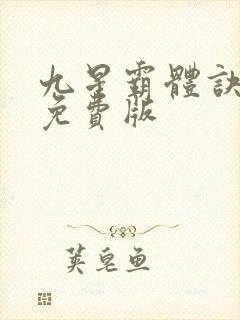 九星霸體訣
免費版
荚皂鱼